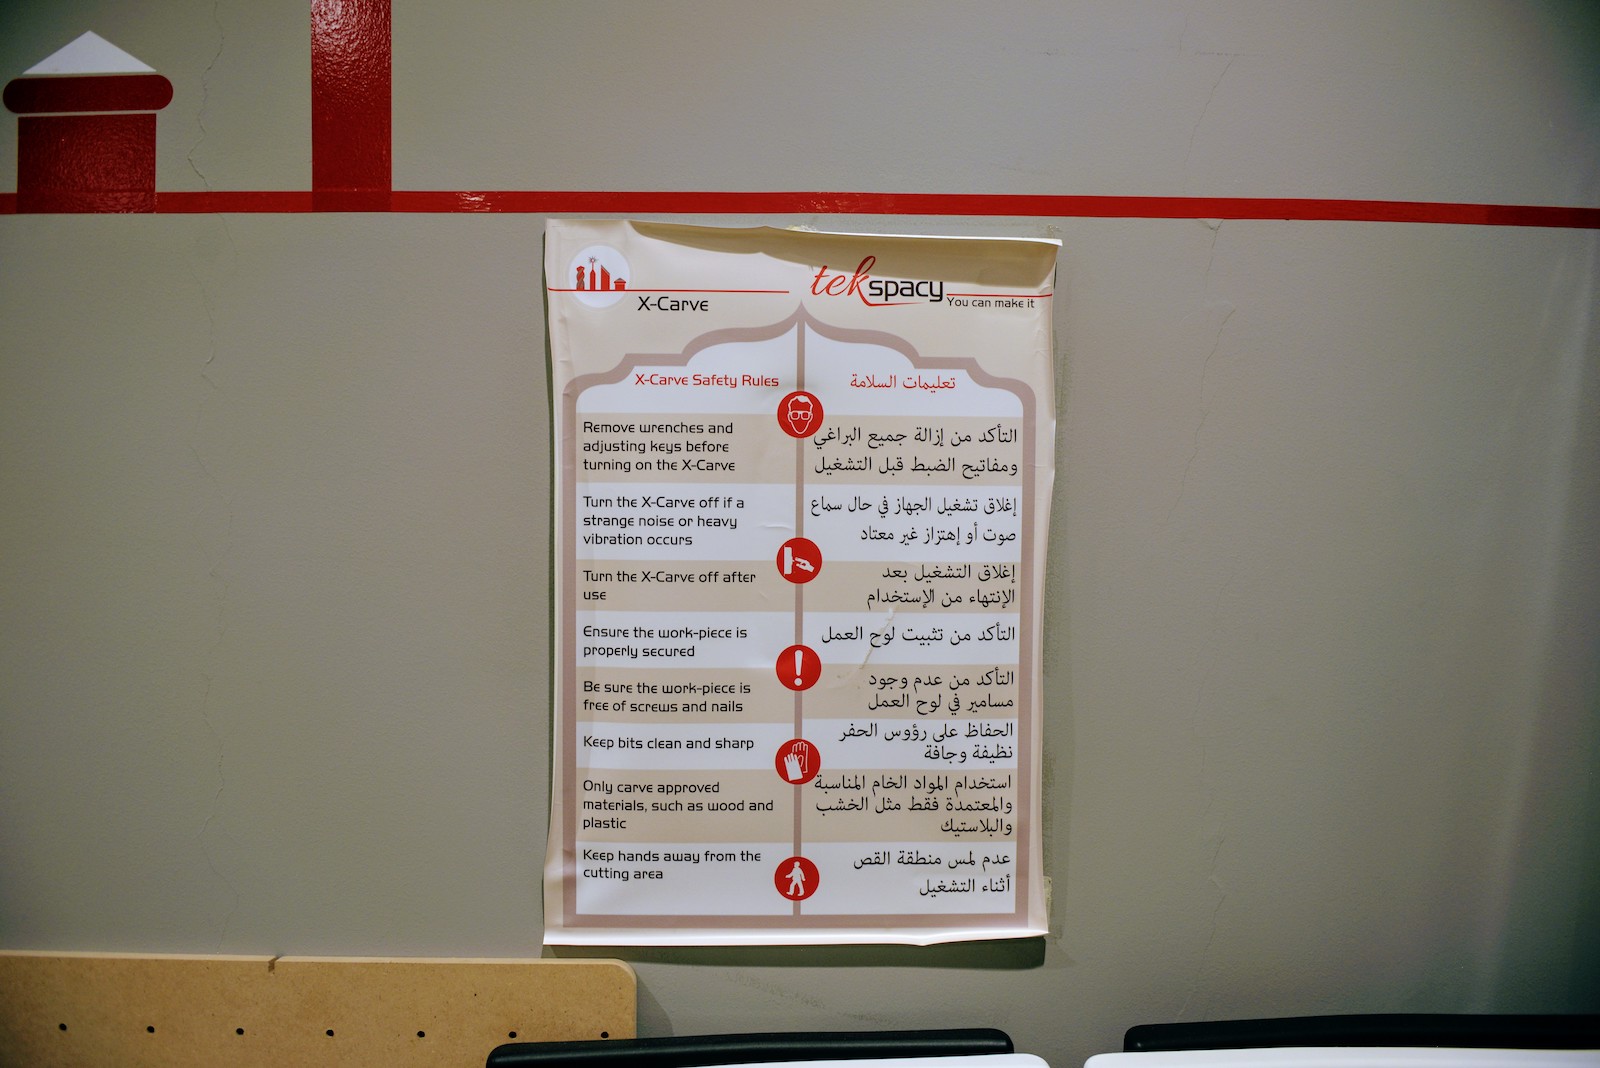 X-Carve
tekspacy
You can make it
X-Carve Safety Rules
Remove wrenches and
adjusting keys before
turning on the X-Carve
Turn the X-Carve off if a
strange noise or heavy
vibration occurs
Turn the X-Carve off after
use
Ensure the work-piece is
properly secured
Be sure the work-piece is
free of screws and nails
Keep bits clean and sharp
Only carve approved
materials, such as wood and
plastic
Keep hands away from the
cutting area
تعليمات السلامة
التأكد من إزالة جميع البراغي
ومفاتيح الضبط قبل التشغيل
إغلاق تشغيل الجهاز في حال سماع
صوت أو إهتزاز غير معتاد
إغلاق التشغيل بعد
الإنتهاء من الإستخدام
التأكد من تثبيت لوح العمل
التأكد من عدم وجود
مسامير في لوح العمل
الحفاظ على رؤوس الحفر
نظيفة وجافة
استخدام المواد الخام المناسبة
والمعتمدة فقط مثل الخشب
والبلاستيك
عدم لمس منطقة القص
أثناء التشغيل